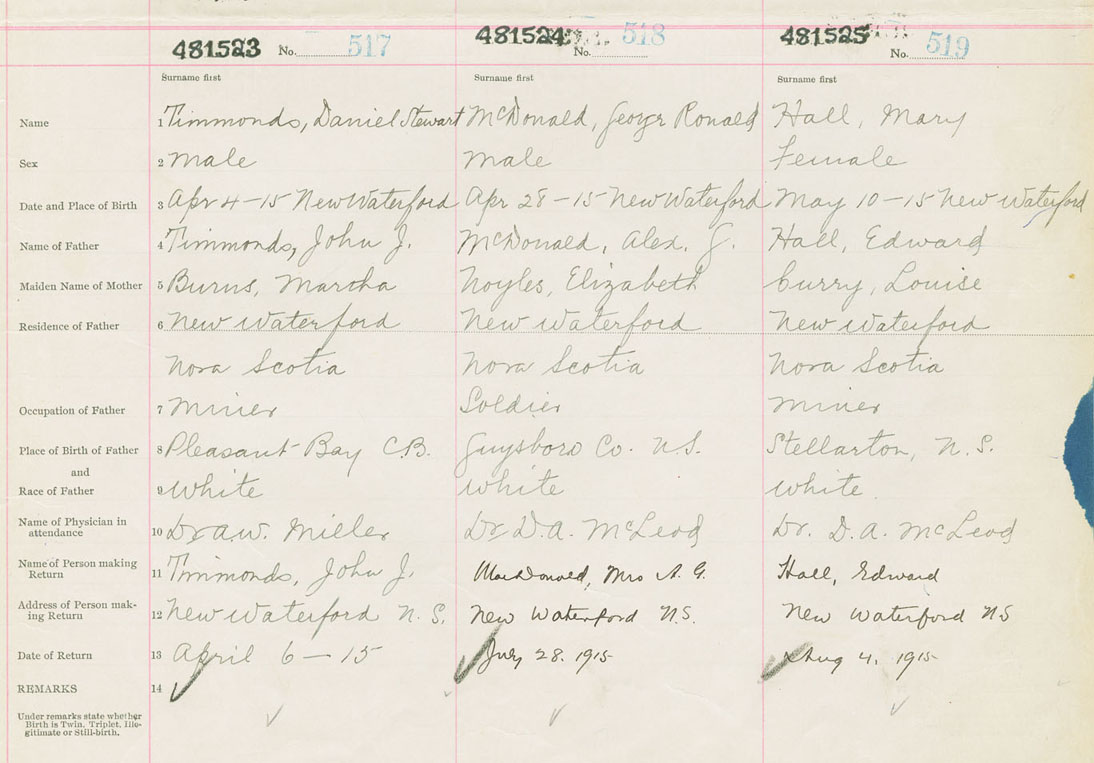 481523 No. 517 481524 No. 518 481525 No. 519
Surname first Surname first Surname first
Name 1 Timmonds, Daniel Stewart McDonald, George Ronald Hall, Mary
Sex 2 Male Male Female
Date and Place of Birth 3 Apr 4-15 New Waterford Apr 28-15 New Waterford May 10-15 New Waterford
Name of Father 4 Timmonds, John J. McDonald, Alex. G. Hall, Edward
Maiden Name of Mother 5 Burns, Martha Noyles, Elizabeth Curry, Louise
Residence of Father 6 New Waterford New Waterford New Waterford
Nova Scotia Nova Scotia Nova Scotia
Occupation of Father 7 Miner Soldier Miner
Place of Birth of Father 8 Pleasant Bay C.B. Guysboro Co. N.S. Stellarton, N.S.
and
Race of Father 9 White White White
Name of Physician in
attendance 10 Dr A.W. Miller Dr D.A. McLeod Dr. D.A. McLeod
Name of Person making
Return 11 Timmonds, John J. MacDonald, Mrs A. G. Hall, Edward
Address of Person mak-
ing Return 12 New Waterford N.S. New Waterford N.S. New Waterford N.S
Date of Return 13 April 6-15 July 28. 1915 Aug 4. 1915
REMARKS 14
Under remarks state whether
Birth is Twin, Triplet, Ille-
gitimate or Still-birth.